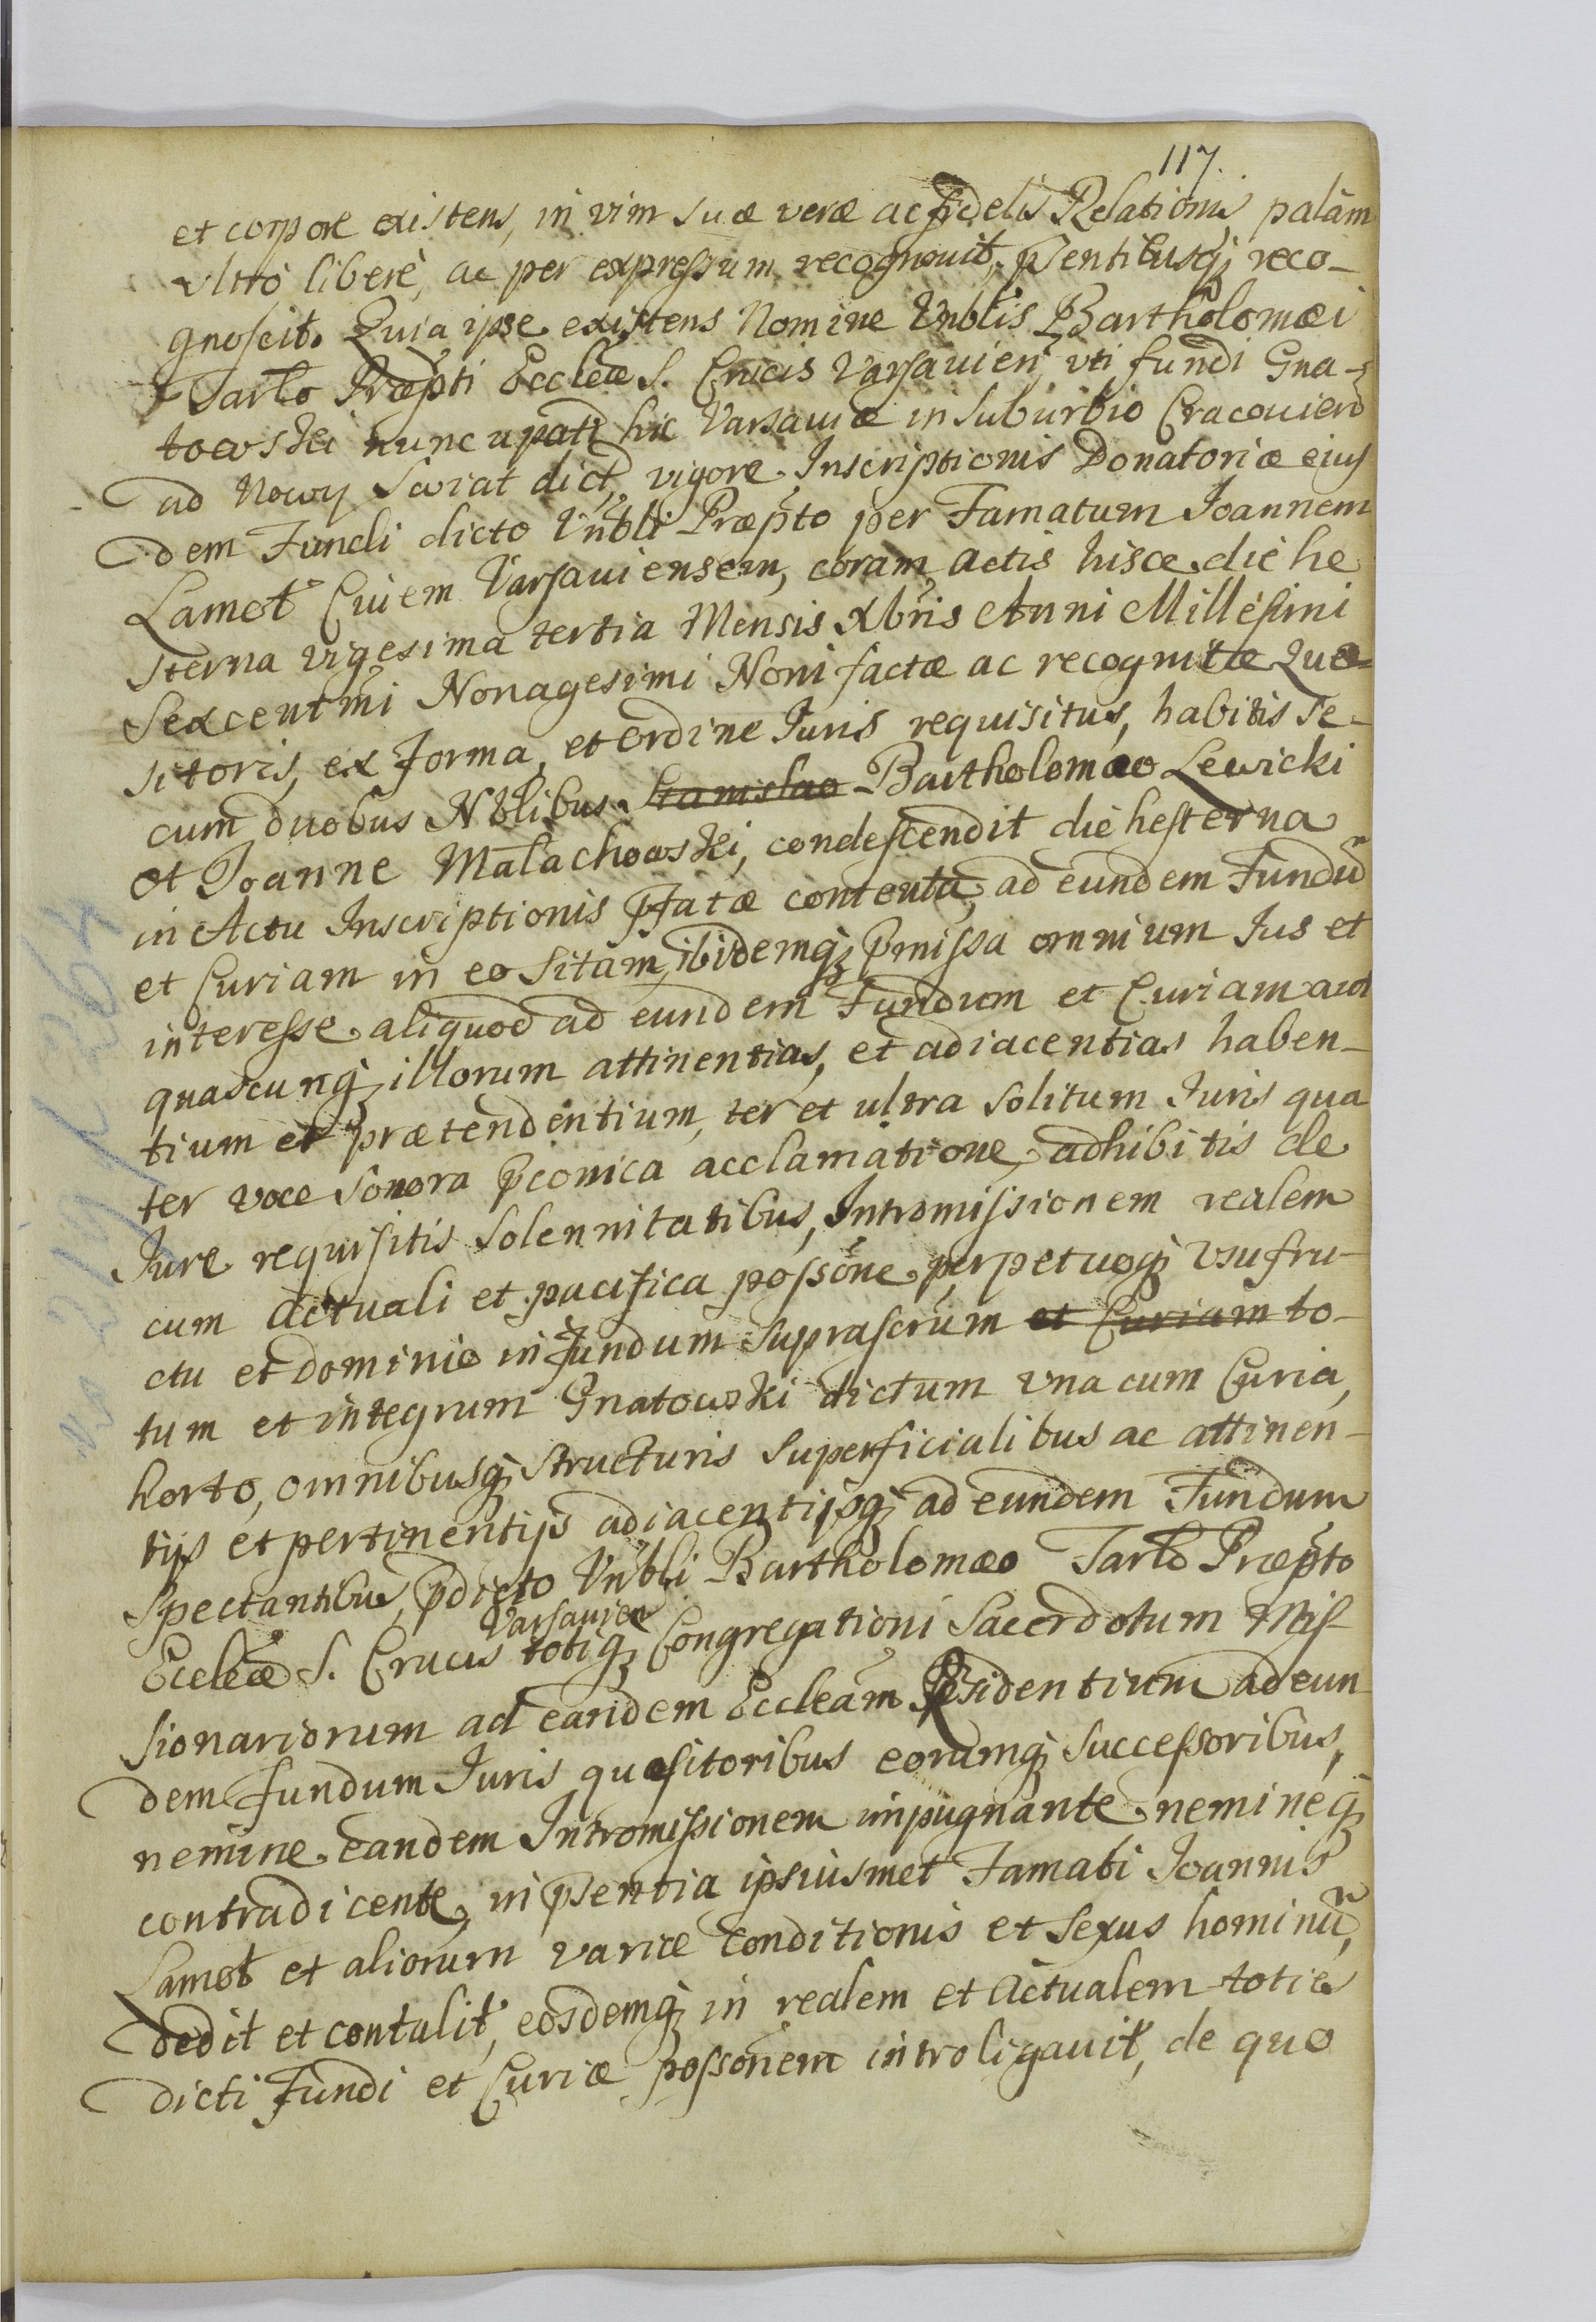 117.
et corpore existens, in vim suæ veræ ac fidelis Relationis, palàm
vltrò liberè, ac per expressum recognouit, pͤsentibusqȝ reco-
gnoscit. Quia ipse existens Nomine Vnblis Bartholomæi
Tarlo Præpti Eccleæ S. Crucis Varsauien, vti fundi Gna-
towski nuncupati hic Varsauiæ in suburbio Cracouien
ad Nowy Swiat dict, vigore Inscriptionis Donatoriæ eius
dem Fundi dicto Vnbli Præpto per Famatum Joannem
Lamot Ciuem Varsauiensem, coram actis hisce die he
sterna vigesima tertia Mensis Xbris Anni Millesimi
Sexcentmi Nonagesimi Noni factæ ac recognitæ Quæ-
sitoris, ex forma, et ordine Juris requisitus, habitis se-
cum duobus Nblibus Stanislao Bartholomæo Lewicki
et Joanne Małachowski, condescendit die hesterna
in Actu Inscriptionis pfatæ contenta, ad eundem Fundũ
et Curiam in eo sitam, ibidemqȝ pmissa omnium Jus et
interesse aliquod ad eundem Fundum et Curiam aut
quascunqȝ illorum attinentias, et adiacentias haben-
tium et prætendentium, ter et ultra solitum Juris qua
ter voce sonora pconica acclamatione, adhibitis de
Jure requisitis solennitatibus, Intromissionem realem
cum actuali et pacifica possone, perpetuoqȝ vsufru-
ctu et dominio in Fundum suprascrum et Curiam to-
tum et integrum Gnatowski dictum vna cum Curia,
horto, omnibusqȝ structuris superficialibus ac attinen-
tijs et pertinentijs adiacentijsqȝ ad eundem Fundum
spectantibus, pdicto Vnbli Bartholomæo Tarlo Præpto
Varsauien
Eccleæ S. Crucis totiqȝ Congregationi Sacerdotum Mis-
sionariorum ad eandem Eccleam Residentium ad eun
dem fundum Juris quæsitoribus eorumqȝ successoribus,
nemine eandem Intromissionem impugnante neminéqȝ
contradicente, in pͤsentia ipsiusmet Famati Joannis
Lamot et aliorum variæ conditionis et sexus hominũ,
dedit et contulit, eosdemqȝ in realem et actualem toties
dicti fundi et Curiæ possonem introligauit, de quo